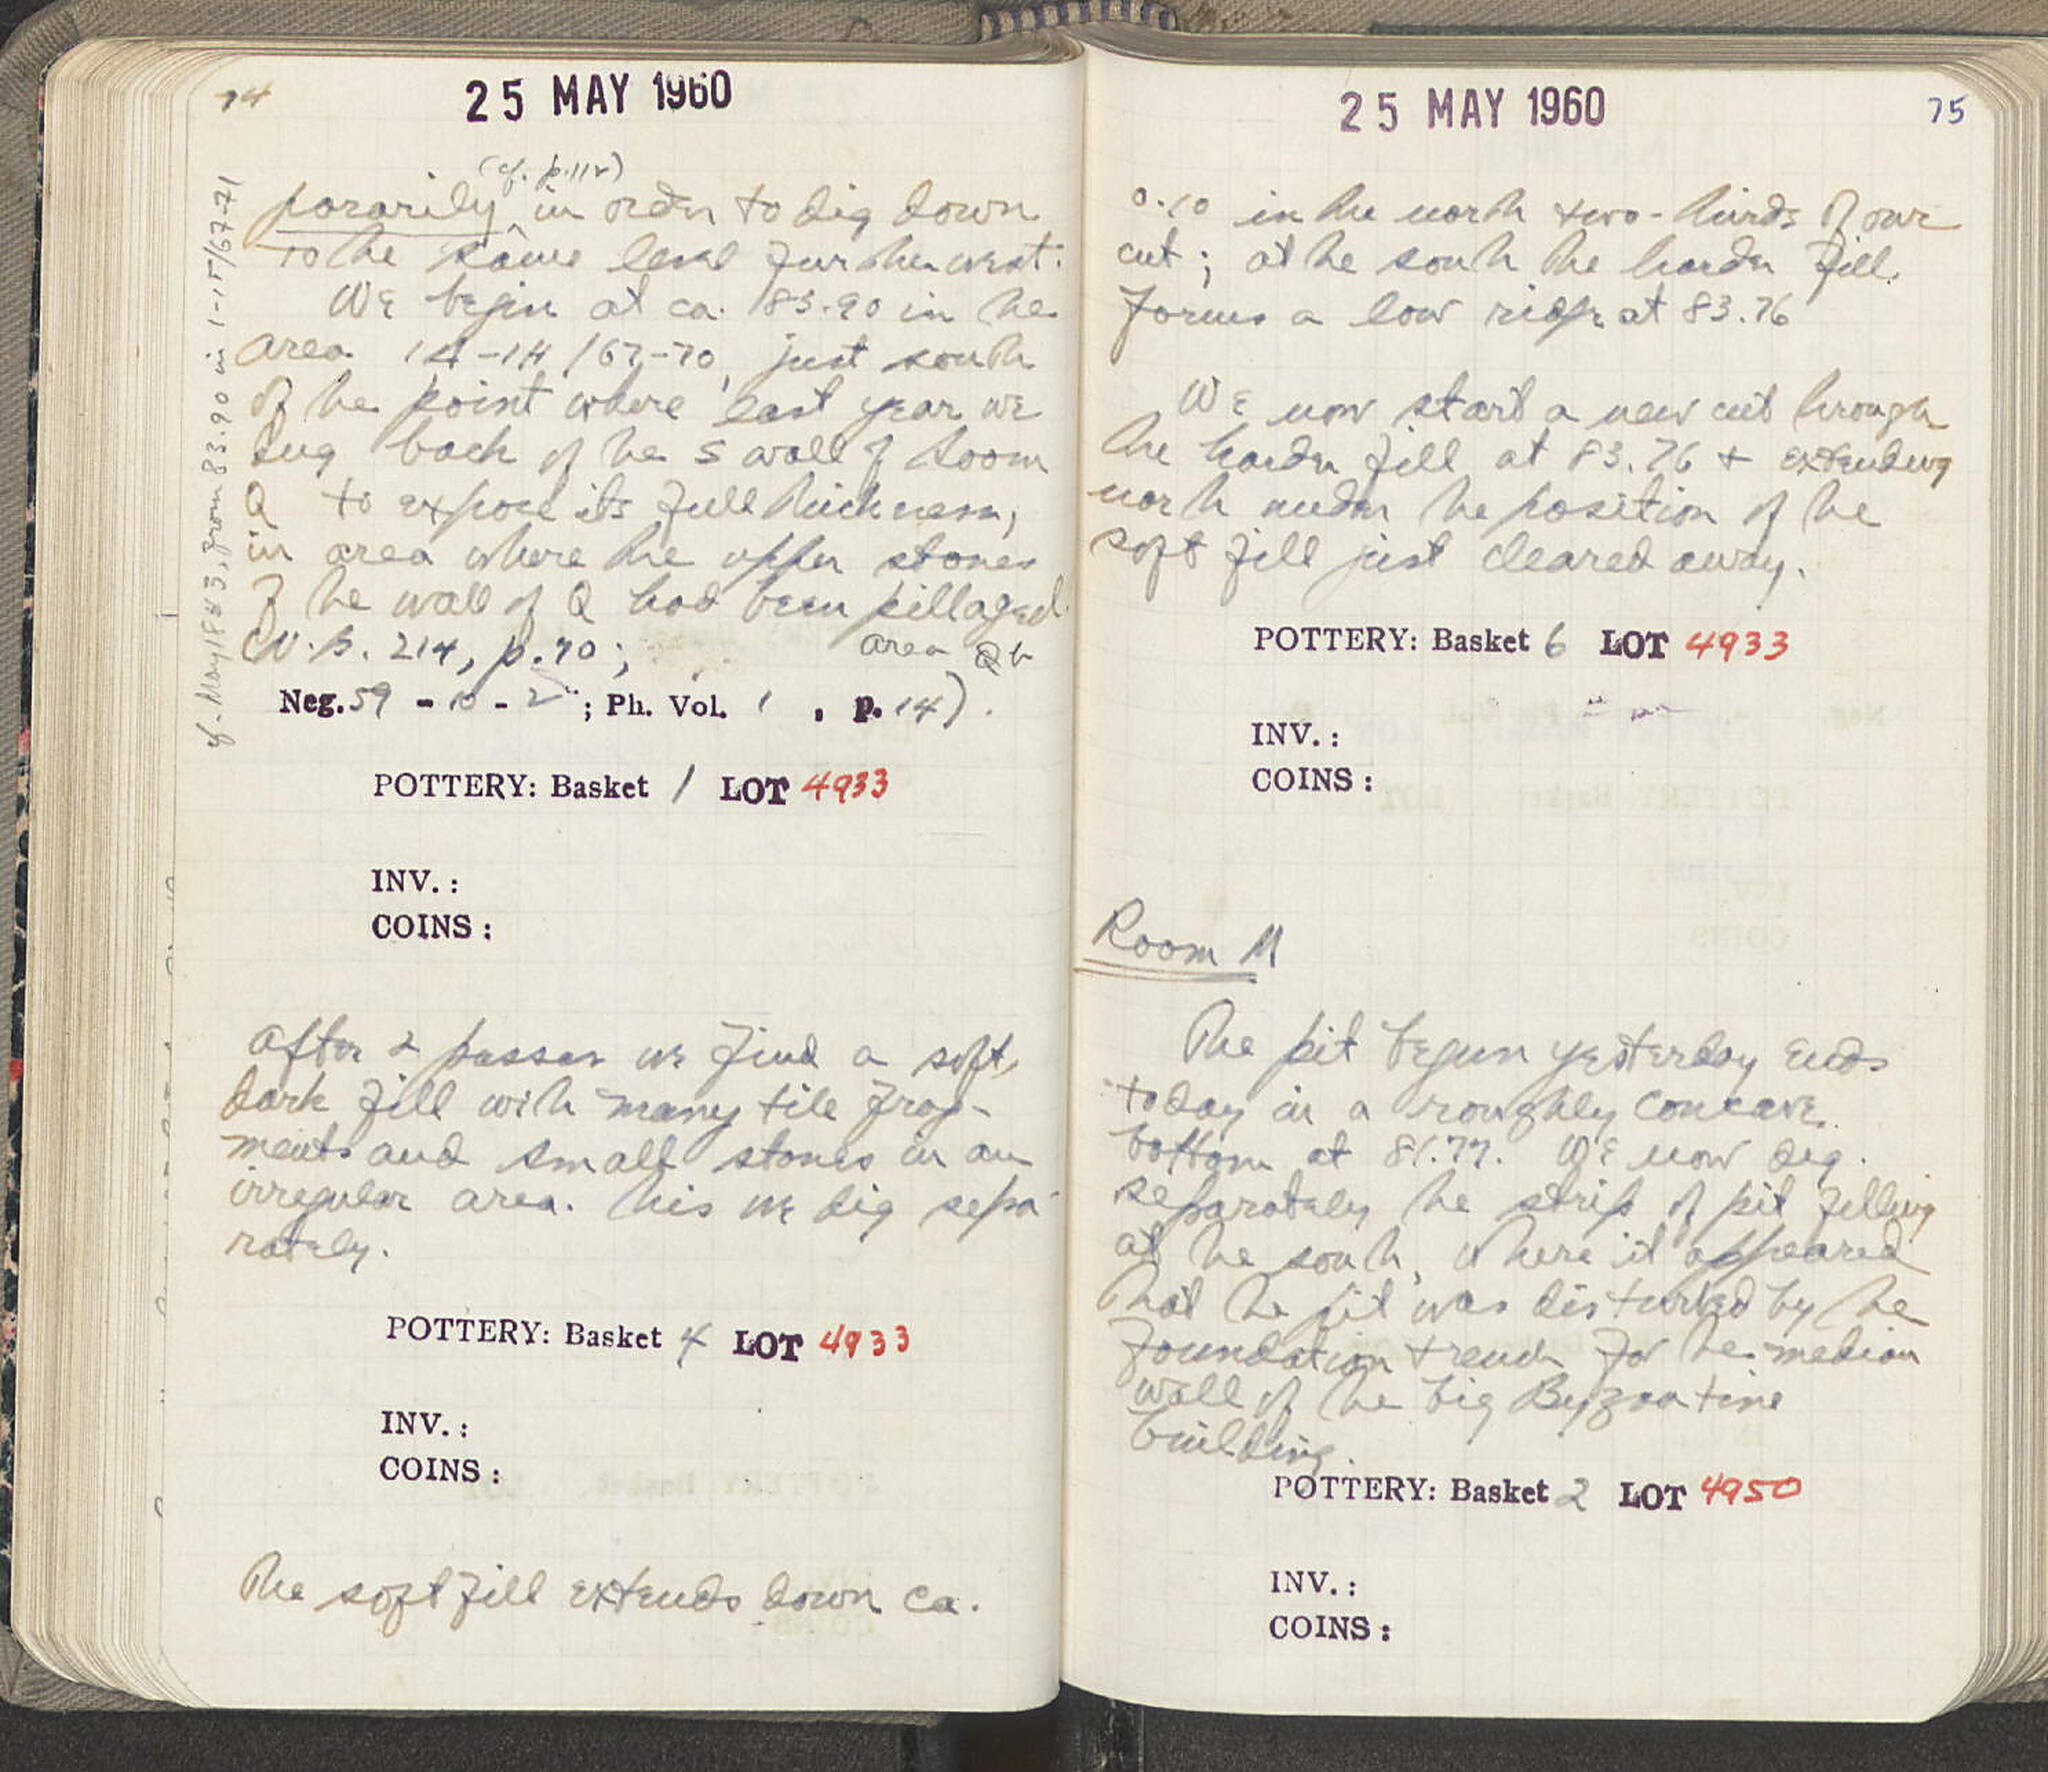 74
25 MAY 1960
(cf. p. 112)
porarily in order to dig down
to the same level further west.
We begin at ca. 83.90 in the
area 1H-1H /67-70, just south
of the point where last year we
dug back of the S wall of Room
Q to expose its full thickness,
in area where the upper stones
of the wall of Q had been pillaged
(N.B. 214, p. 70; area Qb
Neg. 59 - 10 - 2 ; Ph. Vol. 1 , p. 14).
POTTERY: Basket 1 LOT 4933
INV.:
COINS:
After 2 passes we find a soft,
dark fill with many tile frag-
ments and small stones in an
irregular area. This we dig sepa-
rately.
POTTERY: Basket 4 LOT 4933
INV.:
COINS:
The soft fill extends down ca.
25 MAY 1960
75
0.10 in the north two-thirds of our
cut; at the south the harder fill
forms a low ridge at 83.76
We now start a new cut through
the harder fill at 83.76 + extending
north under the position of the
soft fill just cleared away.
POTTERY: Basket 6 LOT 4933
INV.:
COINS:
Room M
The pit begun yesterday ends
today in a roughly concave
bottom at 81.77. We now dig
separately the strip of pit filling
at the south, where it appeared
that the pit was disturbed by the
foundation trench for the median
wall of the big Byzantine
building.
POTTERY: Basket 2 LOT 4950
INV.:
COINS: